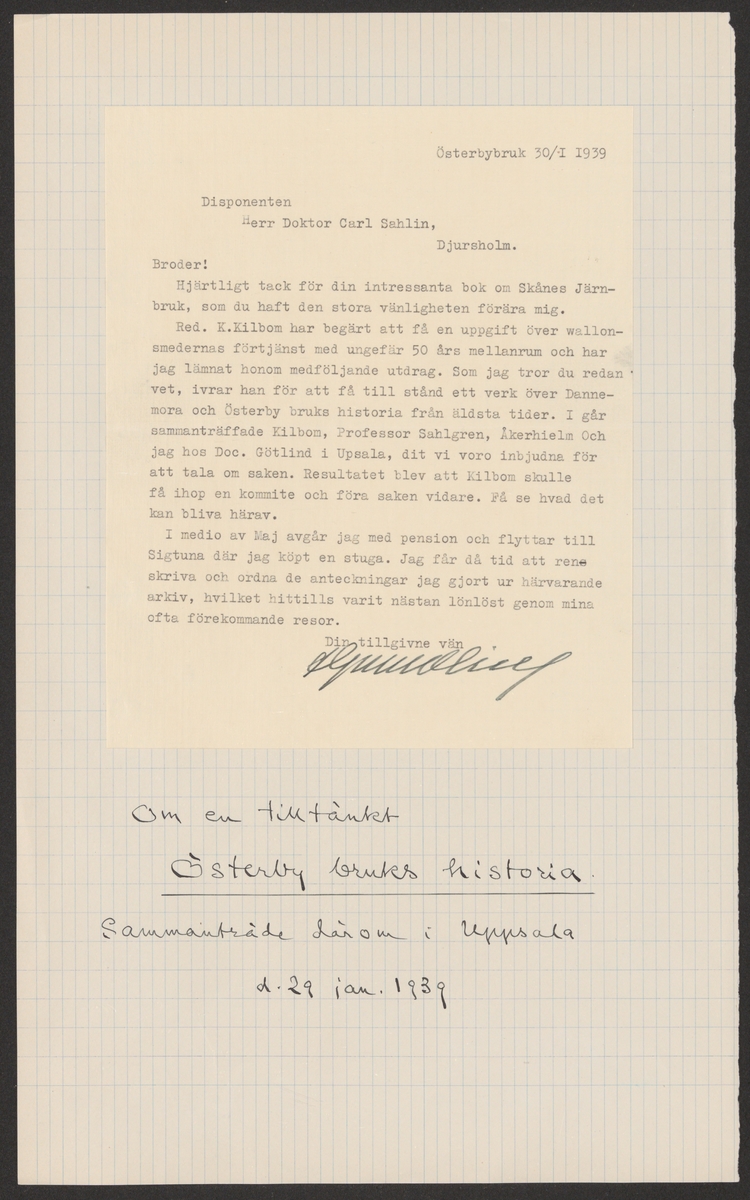 Österbybruk 30/I 1939
Disponenten
Herr Doktor Carl Sahlin,
Djursholm.
Broder!
Hjärtligt tack för din intressanta bok om Skånes Järn-
bruk, som du haft den stora vänligheten förära mig.
Red. K.Kilbom har begärt att få en uppgift över wallon-
smedernas förtjänst med ungefär 50 års mellanrum och har
jag lämnat honom medföljande utdrag. Som jag tror du redan
vet, ivrar han för att få till stånd ett verk över Danne-
mora och Österby bruks historia från äldsta tider. I går
sammanträffade Kilbom, Professor Sahlgren, Åkerhielm Och
jag hos Doc. Götlind i Upsala, dit vi voro inbjudna för
att tala om saken. Resultatet blev att Kilbom skulle
få ihop en kommite och föra saken vidare. Få se hvad det
kan bliva härav.
I medio av Maj avgår jag med pension och flyttar till
Sigtuna där jag köpt en stuga. Jag får då tid att rene
skriva och ordna de anteckningar jag gjort ur härvarande
arkiv, hvilket hittills varit nästan lönlöst genom mina
ofta förekommande resor.
Din tillgivne vän
Om en tilltänkt
Österby bruks historia.
Sammanträde därom i Uppsala
d. 29 jan. 1939